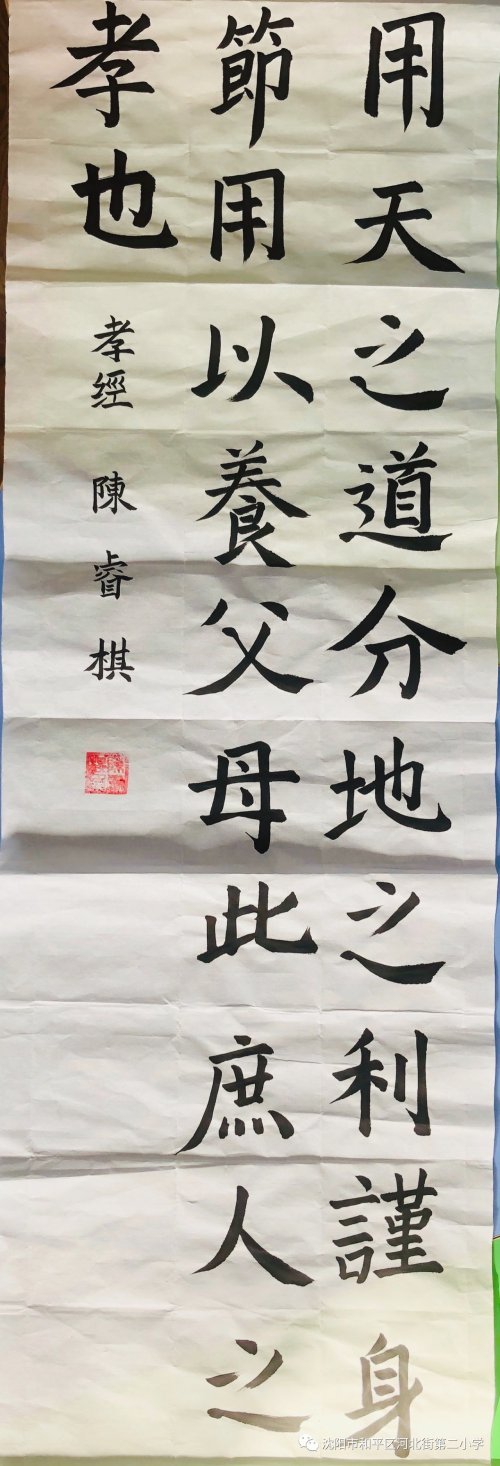 用天之道分地之利謹身
節用以養父母此庶人之
孝也
孝經 陳睿棋
沈阳市和平区河北街第二小学